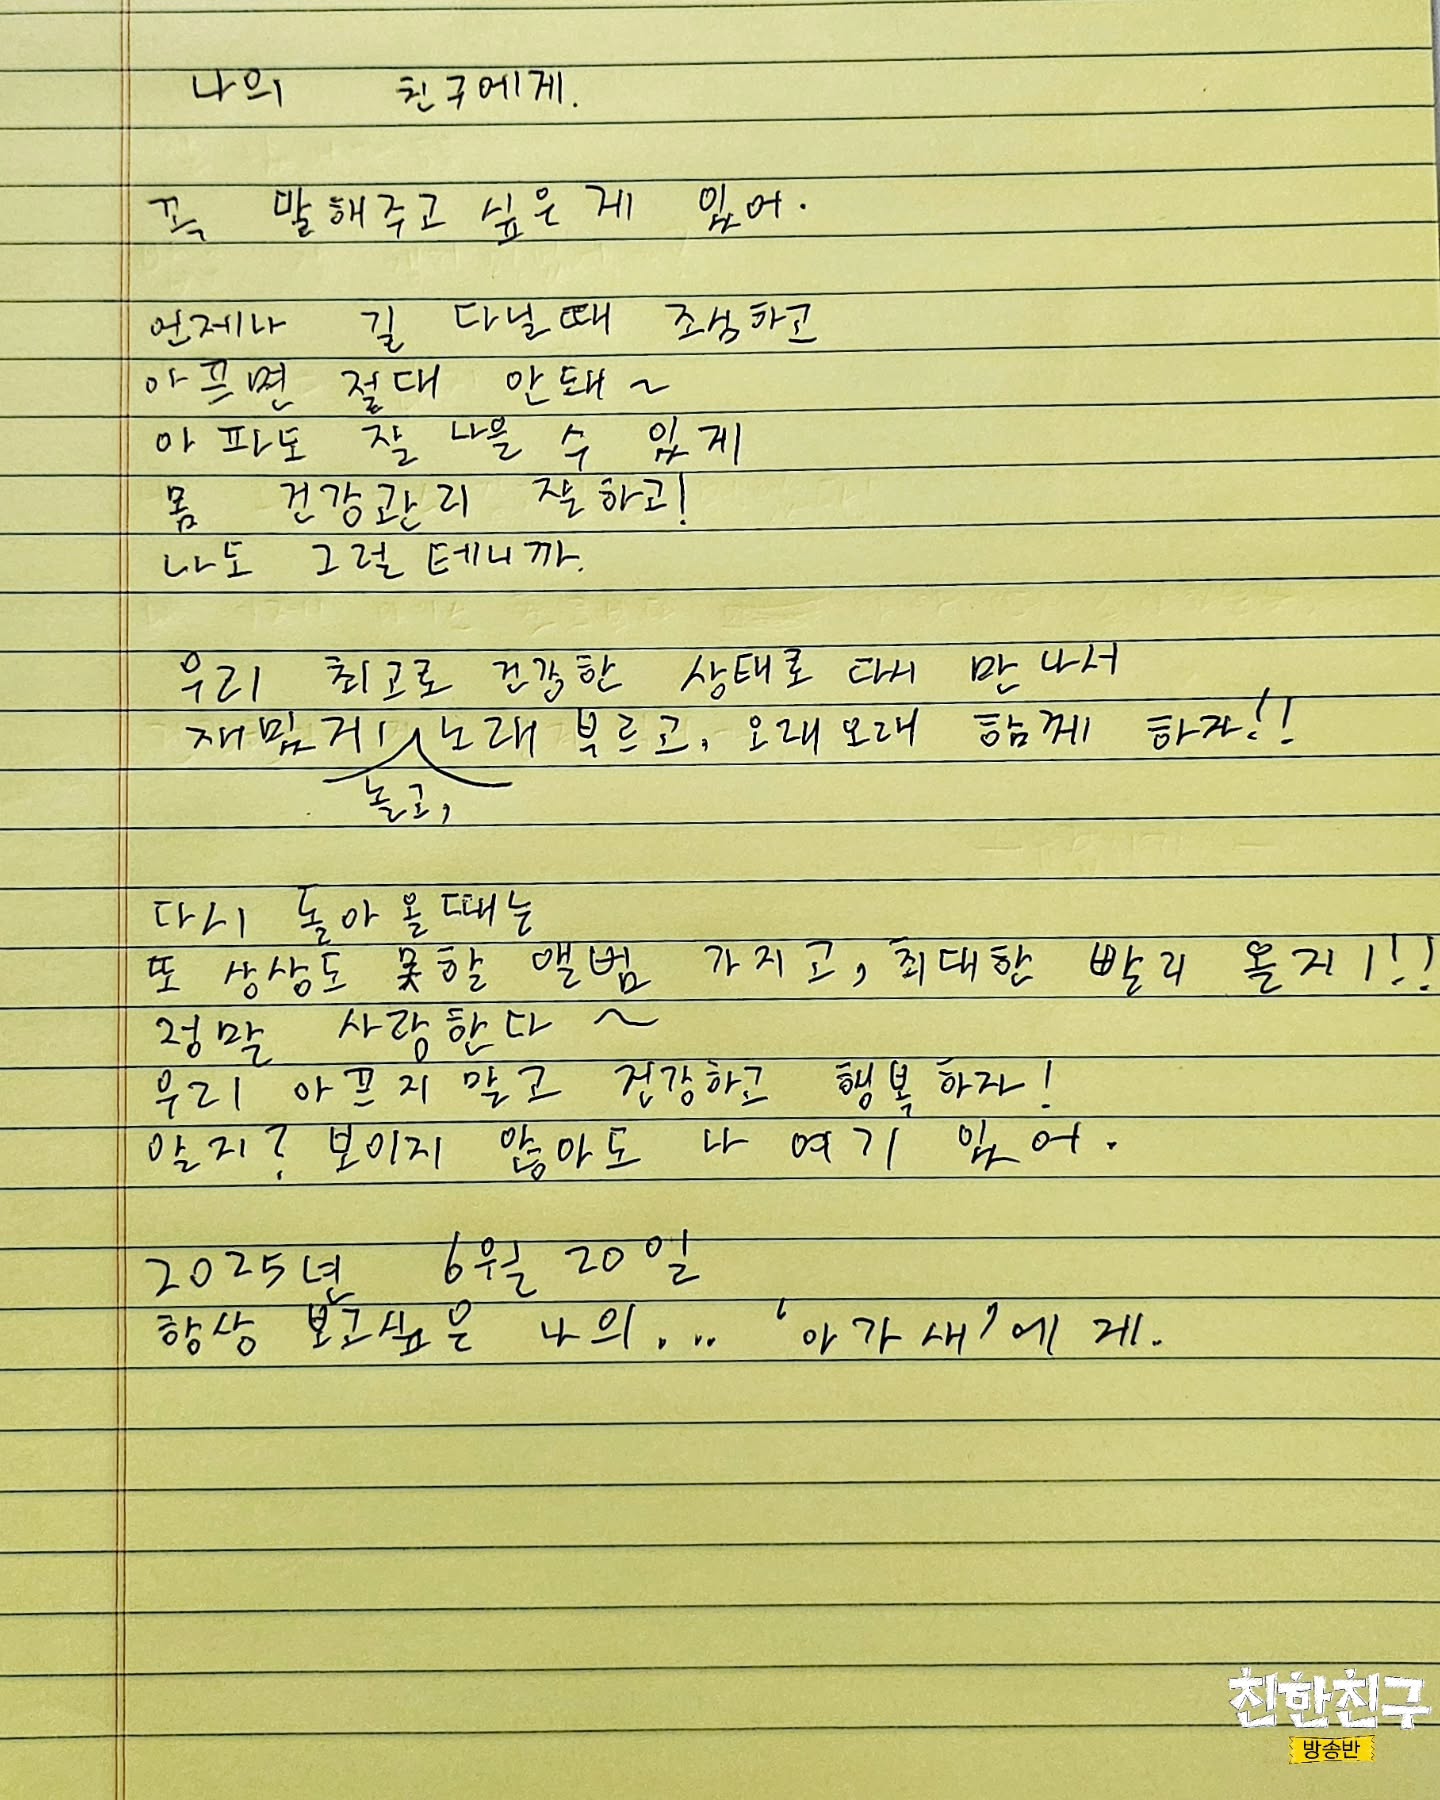 나의 친구에게.
꼭 말해주고 싶은게 있어.
언제나 길 다닐때 조심하고
아프면 절대 안돼~
아파도 잘 나을 수 있게
몸 건강관리 잘하고!
나도 그럴테니까.
우리 최고로 건강한 상태로 다시 만나서
재밌게 노래 부르고, 오래오래 함께 하자!!
놀고,
다시 돌아올때는
또 상상도 못할 앨범 가지고, 최대한 빨리 올지!!!
정말 사랑한다~
우리 아프지 말고 건강하고 행복하자!
알지? 보이지 않아도 나 여기 있어.
2025년 6월 20일
항상 보고싶은 나의... '아가새'에게.
친한친구
방송반